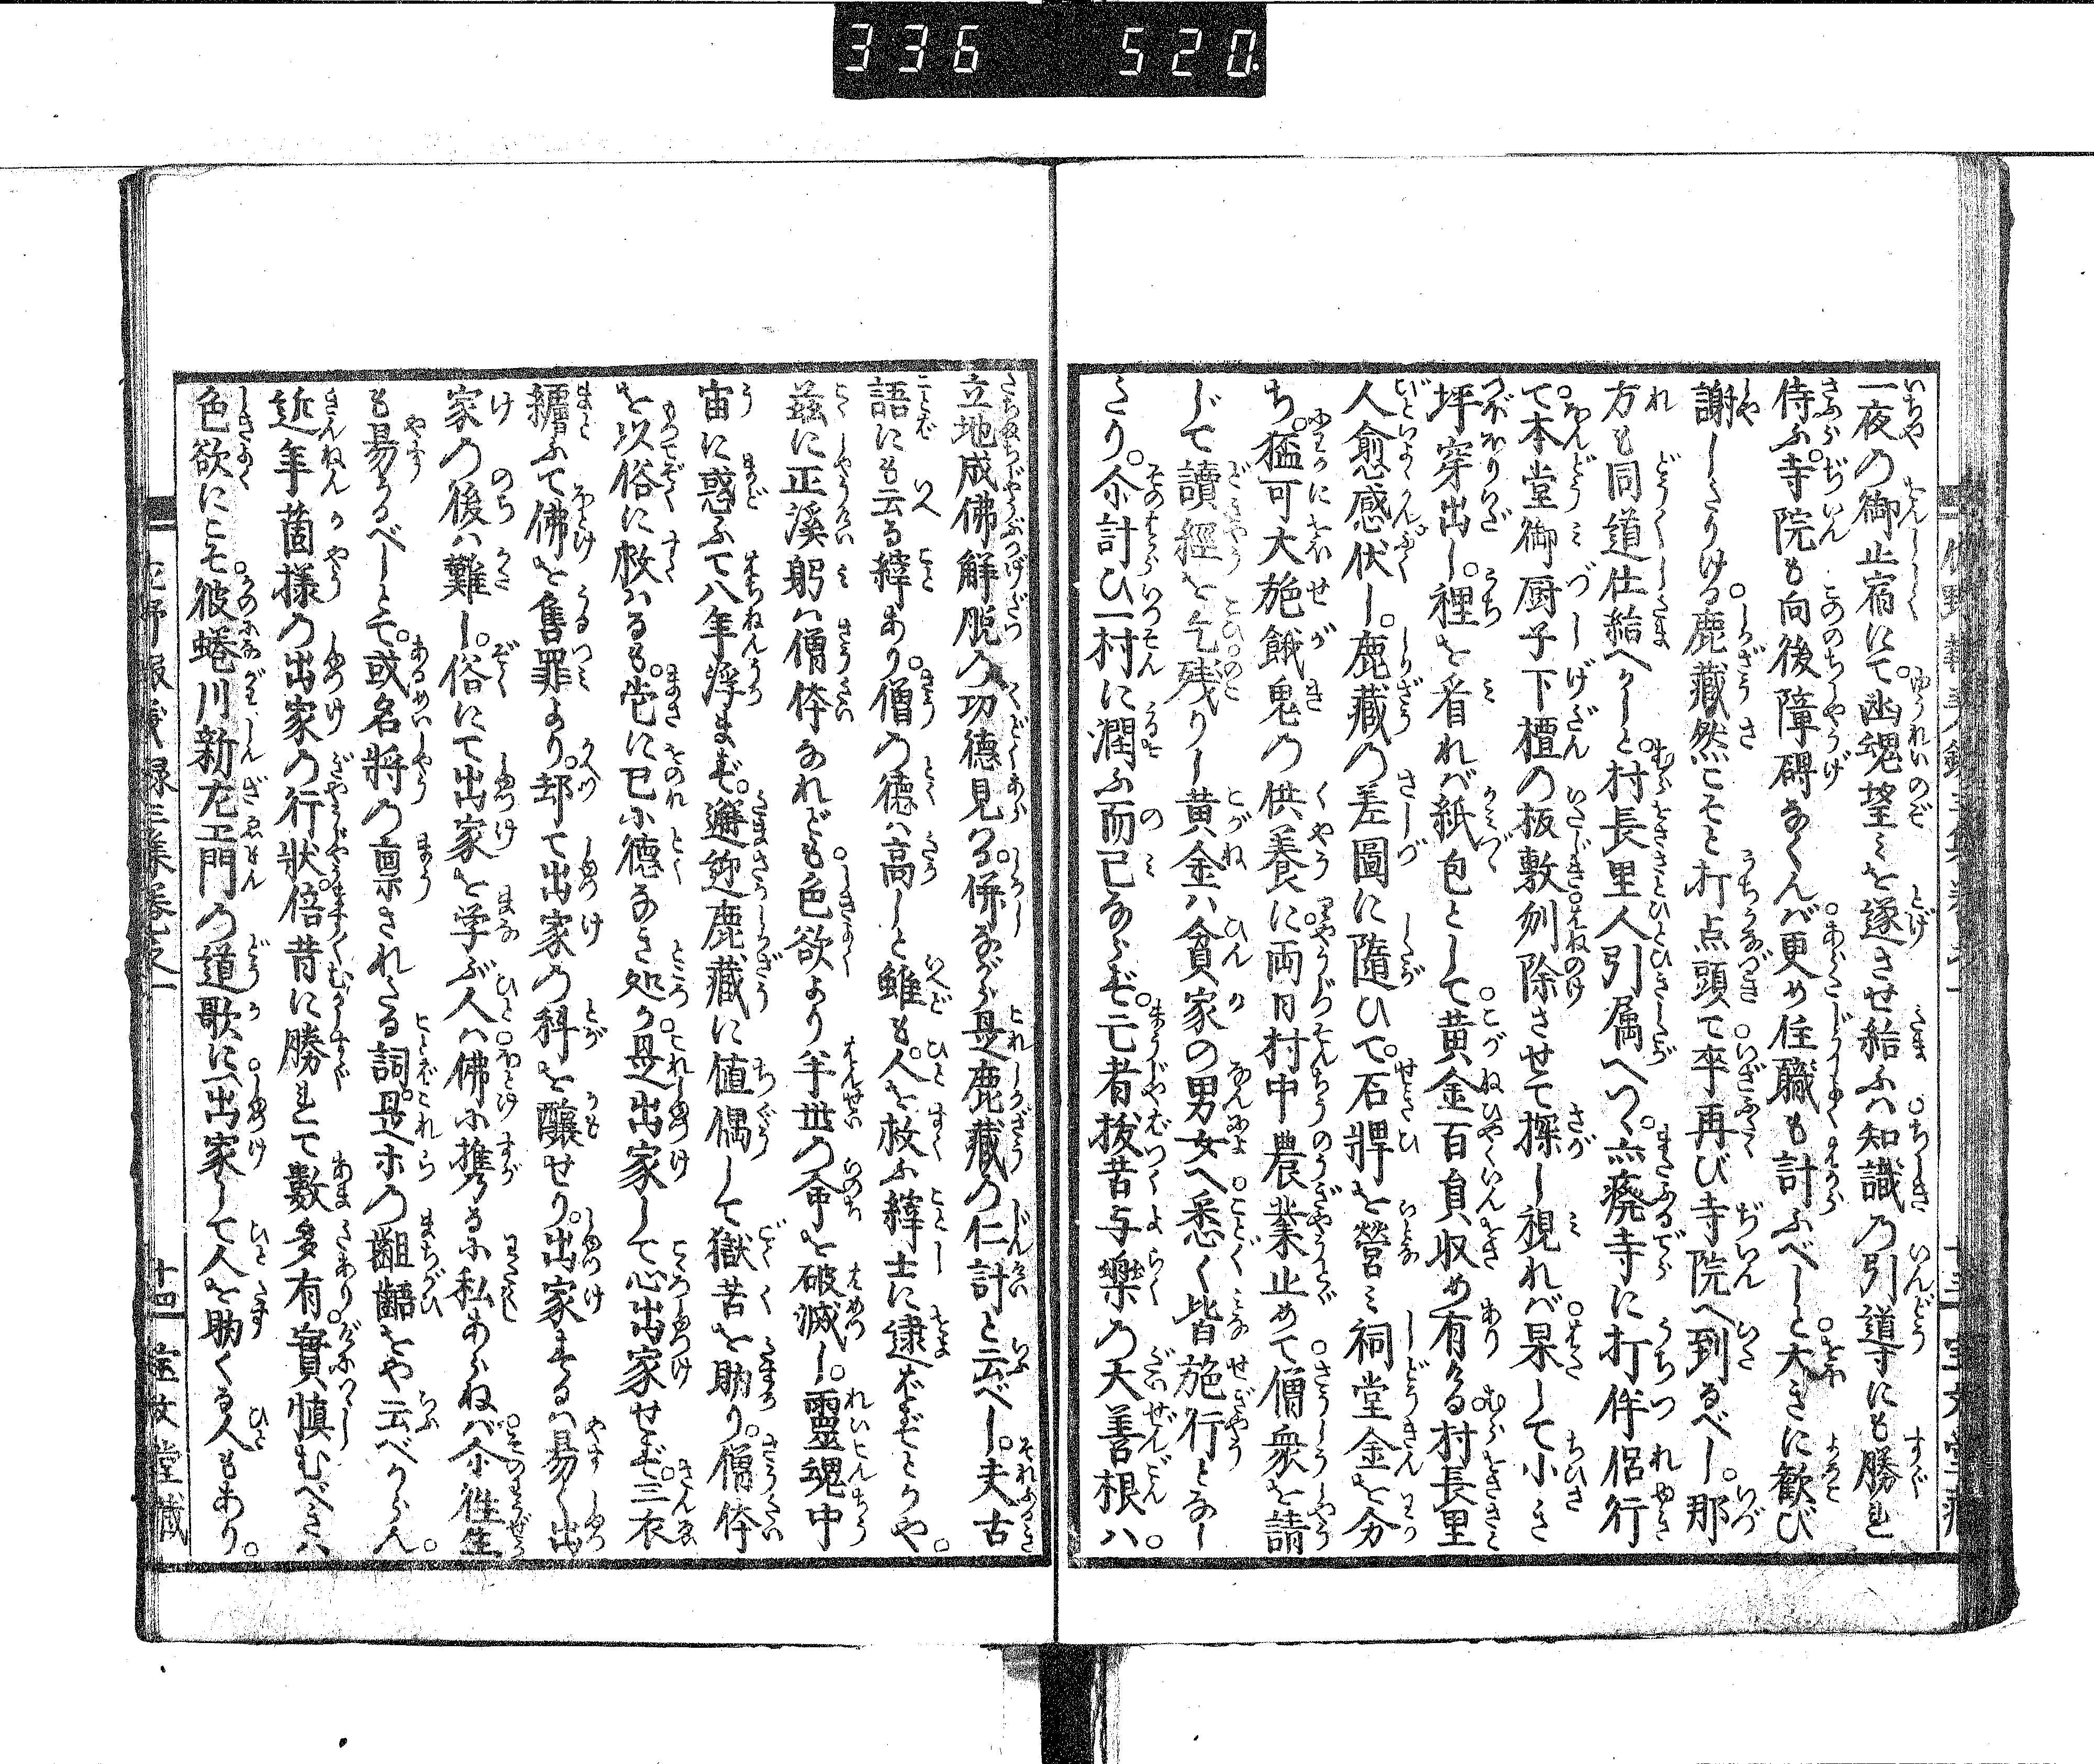 336 520
一夜の御止宿にて。幽魂望ミを遂させ給ふハ知識の引導にも勝れ
侍ふ。寺院も向後障碍なくんバ更め住職も計ふべしと大きに歓び
謝しさりける。鹿藏然こそと打点頭て卒再び寺院へ到るべし。那
方も同道仕給へかしと。村長里人引属へつゝ。亦廃寺に打伴侶行
て。本堂御厨子下檀の板敷刎除させて探し視れバ。果して小き
坪穿出し。裡を看れバ紙包として。黄金百員収め有ける。村長里
人愈感伏し。鹿藏の差圖に隨ひて。石牌を營ミ祠堂金を分
ち。猛可大施餓鬼の供養に。両日村中農業止めて。僧衆を請
じて讀經を乞。残りし黄金ハ貧家の男女へ。悉く皆施行となし
さり。尒計ひ一村に潤ふ而已ならず。亡者抜苦与樂の大善根ハ。
立地成佛解脱の功德見つる。併ながら是鹿藏の仁計と云べし。夫古
語にも云る縡あり。僧の徳ハ高しと雖も。人を救ふ縡士に逮ばずとかや。
茲に正溪躬ハ僧体なれども。色欲より半世の命を破滅し。靈魂中
宙に惑ふて八年浮まず。邂逅鹿藏に値偶して獄苦を助り。僧体
を以俗に救ハるも。当に已小德なき処か。是出家して心出家せず。三衣
纏ふて佛を售罪より。却て出家の科を釀せり。出家まるハ易く出
家の後ハ難し。俗にて出家を学ぶ人ハ。佛小携るに私あらねバ。尒往生
も易かるべしとて。或名將の禀されさる詞。是ホの齟齬をや云べからん。
近年箇様の出家の行状。倍昔に勝りて數多有。實慎むべきハ
色欲にこそ。彼蜷川新左エ門の道歌に。出家して人を助くる人もあり。
十四 宝文堂藏